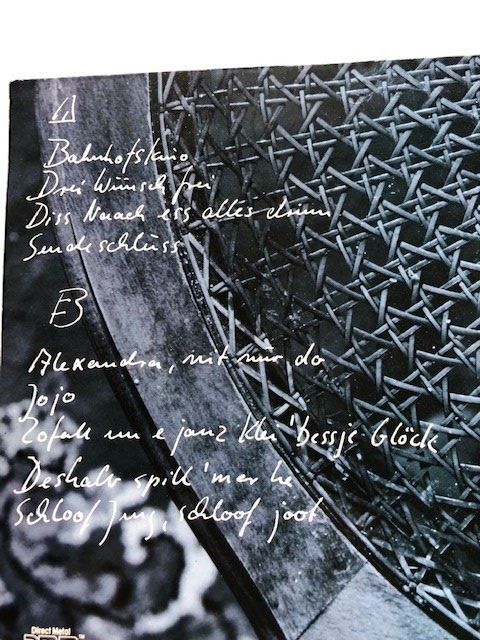 A
Bahnhofskino
Drei Wünsch frei
Diss Naach ess alles drinn
Sendeschluss
B
Alexandra, nit nur do
Jojo
Zofall un e janz klei' bessje Glöck
Deshalv spill' mer he
Schloof Jung, schloof joot
Direct Metal